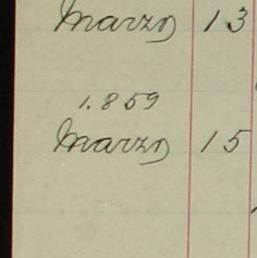 Marzo 13
1.859
Marzo 15